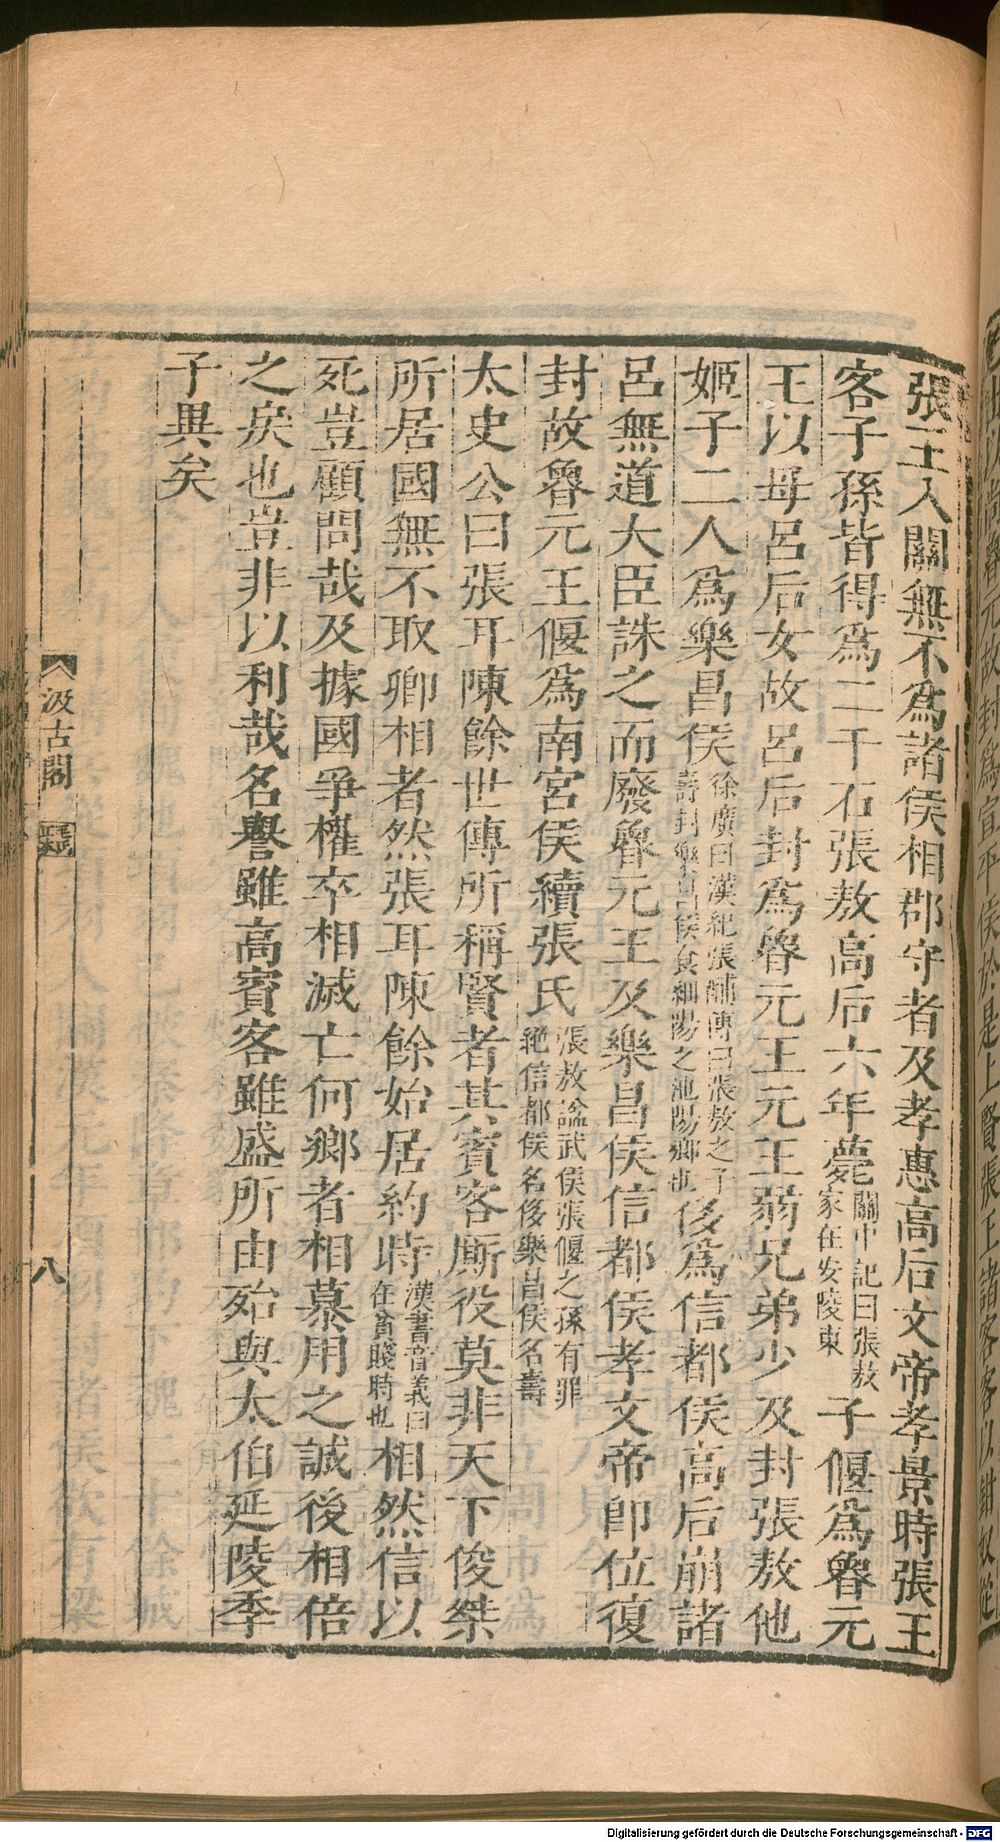 張王入關無不爲諸侯相郡守者及孝惠高后文帝孝景時張王
客子孫皆得爲二千石張敖高后六年薨關中記曰張敖家在安陵東子偃爲魯元
王以母呂后女故呂后封爲魯元王元王弱兄弟少及封張敖他
姬子二人爲樂昌侯徐廣曰漢紀張酺傳曰張敖之子壽封樂昌侯食細陽之池陽鄉也侈爲信都侯高后崩諸
呂無道大臣誅之而廢魯元王及樂昌侯信都侯孝文帝卽位復
封故魯元王偃爲南宮侯續張氏張敖諡武侯張偃之孫有罪絕信都侯名侈樂昌侯名壽
太史公曰張耳陳餘世傳所稱賢者其賓客廝役莫非天下俊桀
所居國無不取卿相者然張耳陳餘始居約時漢書音義曰在貧賤時也相然信以
死豈顧問哉及據國爭權卒相滅亡何鄉者相慕用之誠後相倍
之戾也豈非以利哉名譽雖高賓客雖盛所由殆與太伯延陵季
子異矣
汲古閣
八
Digitalisierung gefördert durch die Deutsche Forschungsgemeinschaft - DFG